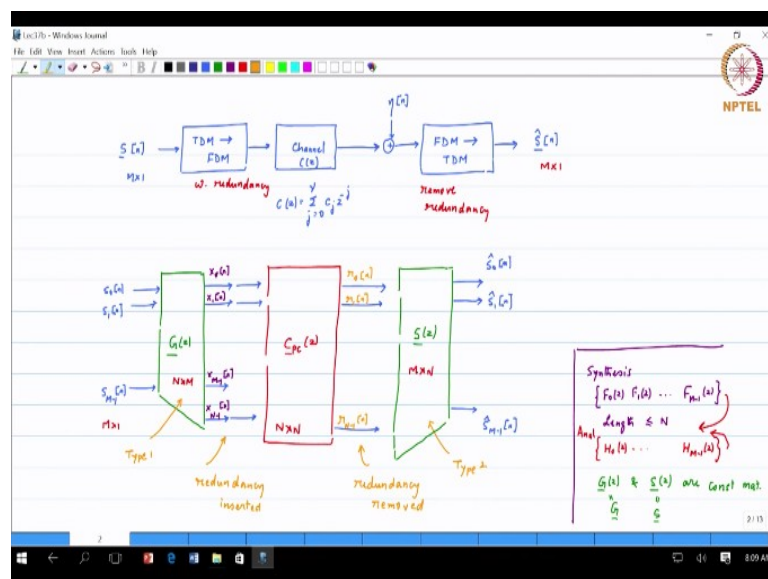 Lec37b - Windows Journal
File Edit View Insert Actions Tools Help
NPTEL
η[n]
S[n]
M×1
TDM →
FDM
w. redundancy
Channel
C(z)
C(z) = Σ_{j=0}^{γ} C_j z^{-j}
FDM →
TDM
remove
redundancy
Ŝ[n]
M×1
s₀[n]
s₁[n]
s_{M-1}[n]
M×1
G(z)
N×M
Type 1
x₀[n]
x₁[n]
x_{M-1}[n]
x_{N-1}[n]
redundancy
inserted
C_pc(z)
N×N
r₀[n]
r₁[n]
r_{N-1}[n]
redundancy
removed
S(z)
M×N
Type 2
ŝ₀[n]
ŝ₁[n]
ŝ_{M-1}[n]
Synthesis
{F₀(z) F₁(z) ... F_{M-1}(z)}
Length ≤ N
Anal {H₀(z) ... H_{M-1}(z)}
G(z) & S(z) are const mat.
G S
2/13
2
8:09 AM